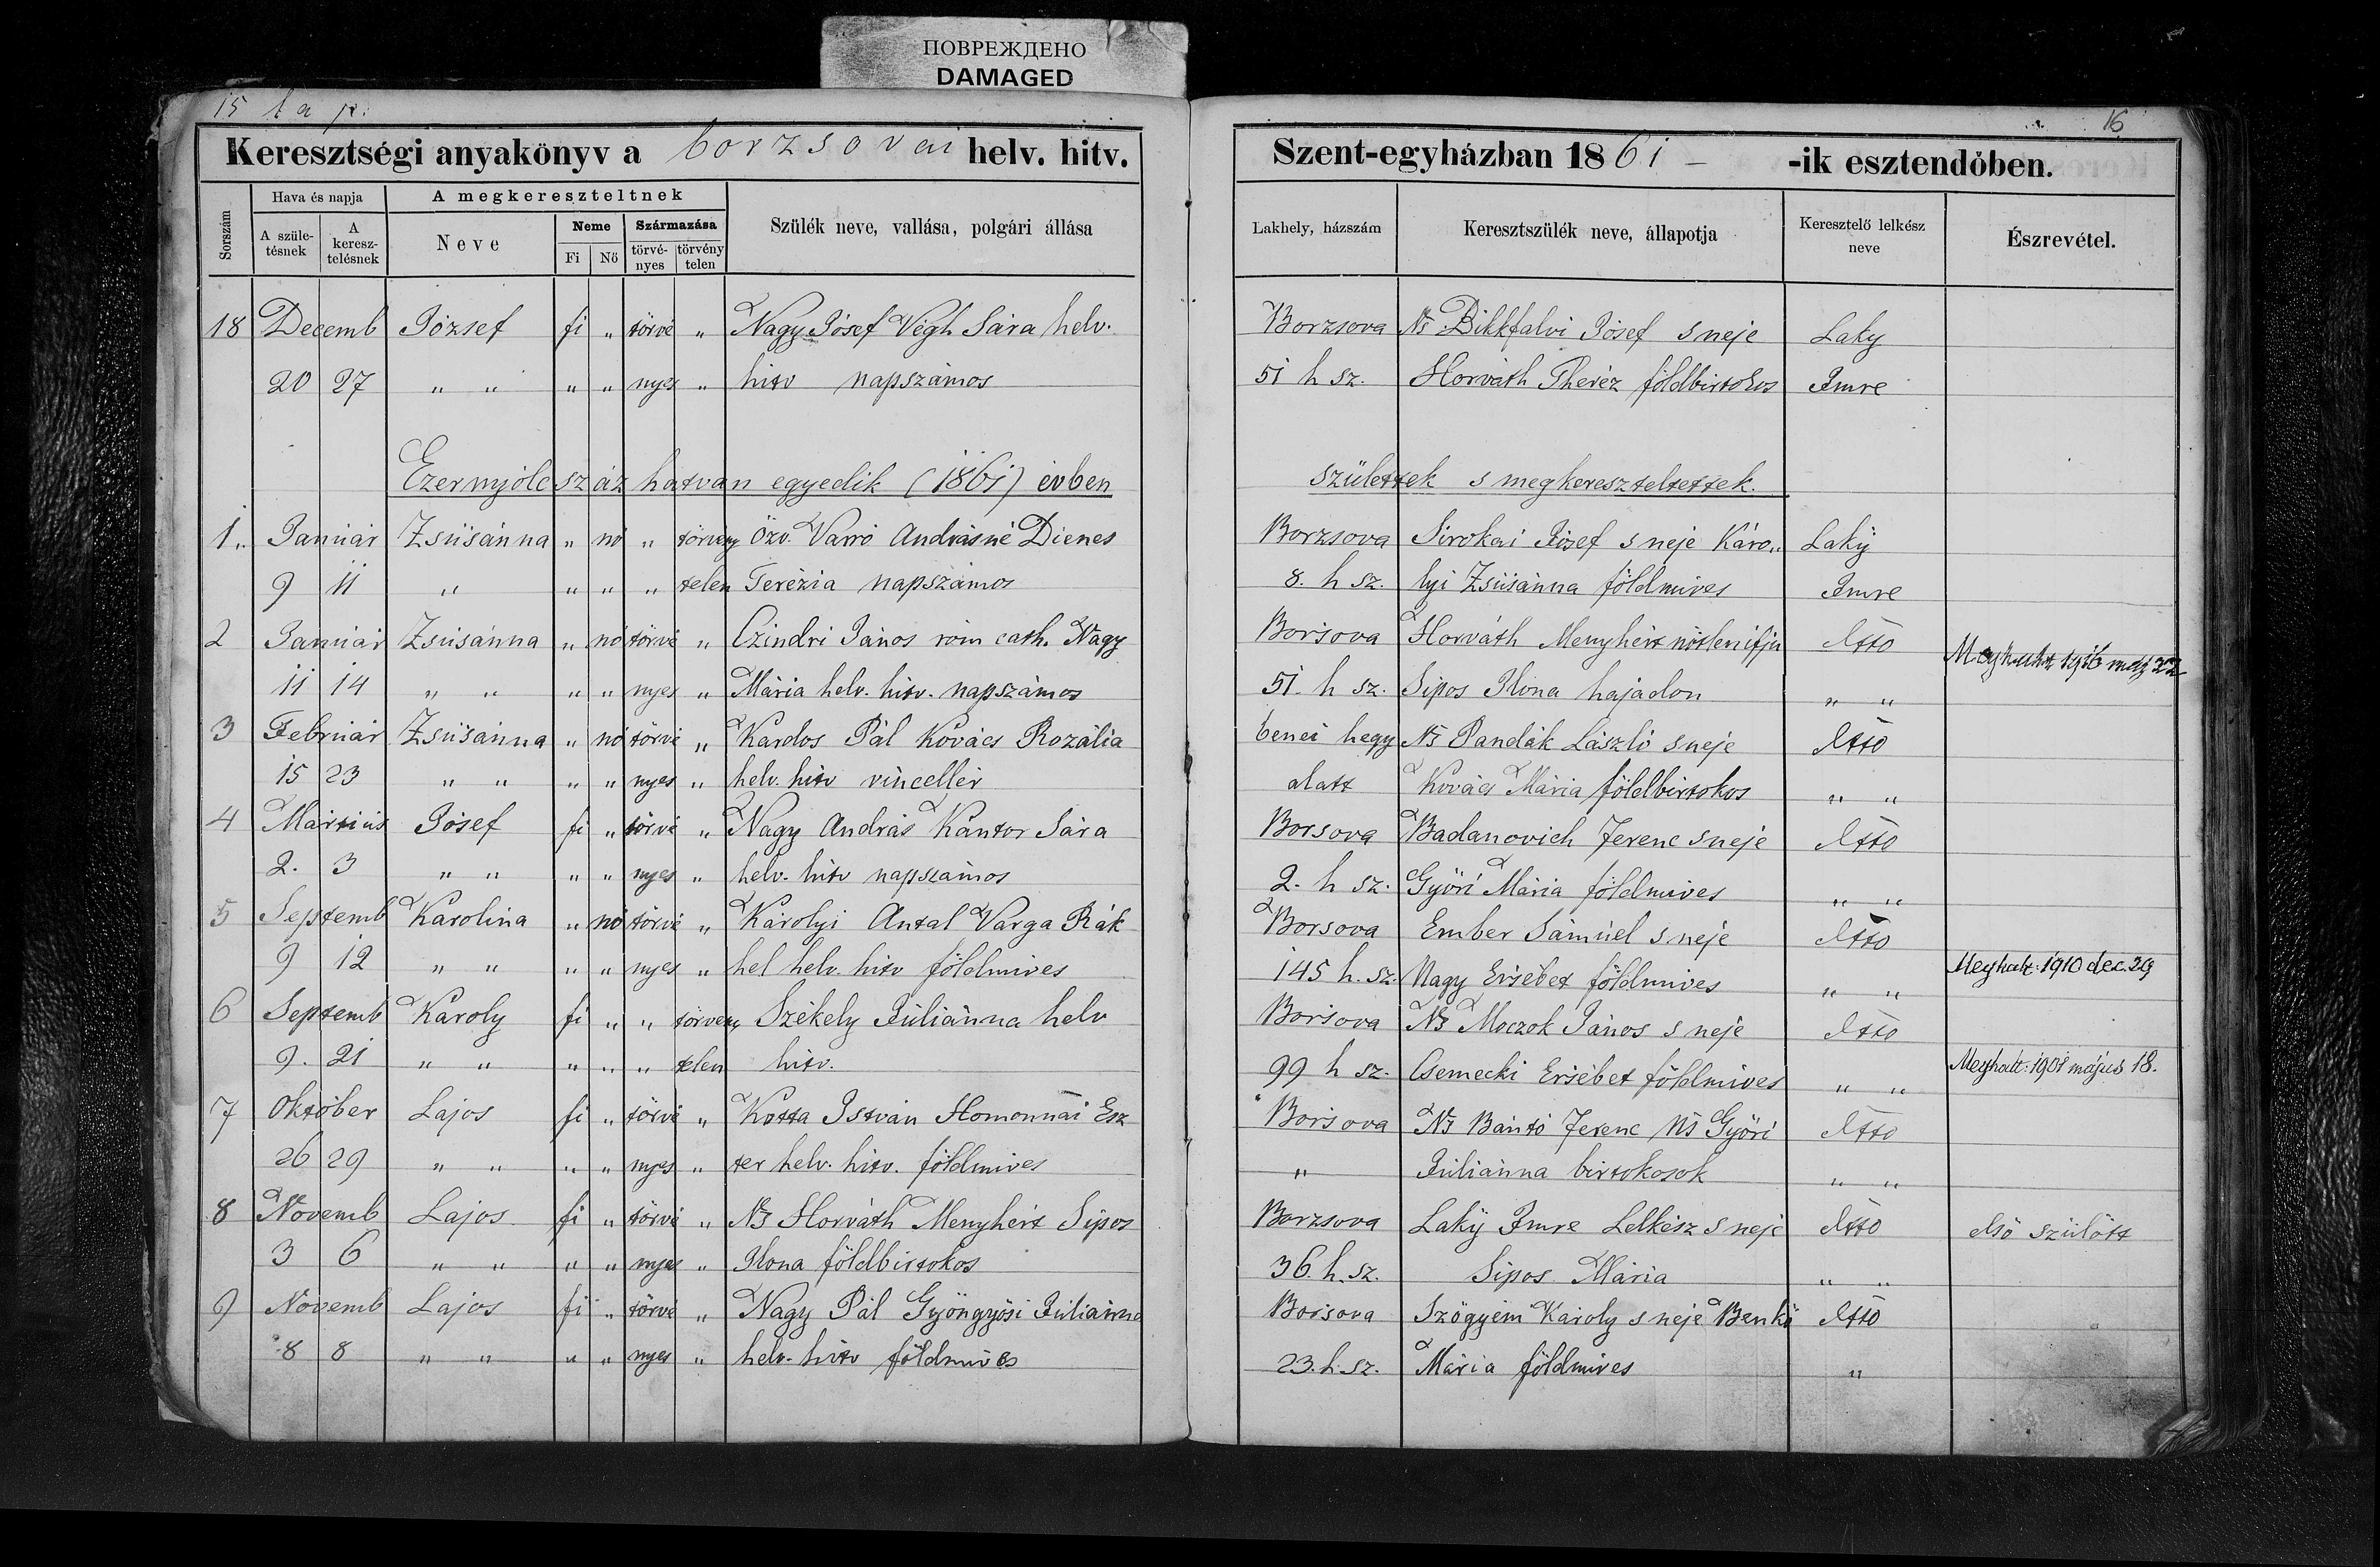 ПОВРЕЖДЕНО
DAMAGED
15 lap.
Keresztségi anyakönyv a borzsovai helv. hitv.
Sorszám
Hava és napja
A szüle-
tésnek
A
keresz-
telésnek
A megkereszteltnek
Neve
Neme
Fi Nő
Származása
törvé-
nyes
törvény
telen
Szülék neve, vallása, polgári állása
18 Decemb József fi „ törvé „ Nagy Jósef Végh Sára helv.
20 27 „ „ „ „ nyes „ hitv napszámos
Ezernyólcszáz hatvan egyedik (1861) évben
1. Január Zsúsánna „ nő „ törvény Özv. Varró Andrásné Dienes
9 11 „ „ „ „ telen Terézia napszámos
2 Január Zsúsánna „ nő törvé „ Czindri János róm cath. Nagy
11 14 „ „ „ „ nyes „ Mária helv. hitv. napszámos
3 Február Zsúsánna „ nő törvé „ Kardos Pál Kovács Rozália
15 23 „ „ „ „ nyes „ helv. hitv vinczellér
4 Martiús Jósef fi „ törvé „ Nagy András Kántor Sára
2. 3 „ „ „ „ nyes „ helv. hitv napszámos
5 Septemb Karolina „ nő törvé „ Károlyi Antal Varga Rák
9 12 „ „ „ „ nyes „ hel helv. hitv földmives
6 Septemb Károly fi „ „ törvény Székely Júliánna helv
9. 21 „ „ „ „ „ telen hitv.
7 Október Lajos fi „ törvé „ Kotta István Homonnai Esz
26 29 „ „ „ „ nyes „ ter helv. hitv. földmives
8 Novemb Lajos fi „ törvé „ Ns Horváth Menyhért Sipos
3 6 „ „ „ „ nyes „ Ilona földbirtokos
9 Novemb Lajos fi „ törvé „ Nagy Pál Gyöngyösi Júliánna
8 8 „ „ „ „ nyes „ helv. hitv földmives
16
Szent-egyházban 1861 -ik esztendőben.
Lakhely, házszám
Keresztszülék neve, állapotja
Keresztelő lelkész
neve
Észrevétel.
Borzsova Ns Bikkfalvi Jósef s neje Laky
51 h sz. Horváth Theréz földbirtokos Imre
születtek s megkereszteltettek.
Borzsova Sirokai Jósef s neje Káro„ Laky
8. h sz. lyi Zsúsánna földmives Imre
Borsova Horváth Menyhért nőtlen ifju Atto Meghalt 1916 máj 22
51. h sz. Sipos Ilona hajadon „ „
benei hegy Ns Pandák László s neje Atto
alatt Kovács Mária földbirtokos „ „
Borsova Badanovich Ferenc s neje Atto
2. h sz. Győri Mária földmives „ „
Borsova Ember Sámúel s neje Atto
145 h. sz. Nagy Ersébet földmives „ „ Meghalt: 1910 dec. 29
Borsova Ns Moczok János s neje Atto
99 h sz. Csemecki Ersébet földmives „ „ Meghalt: 1901 május 18.
Borsova Ns Bántó Ferenc Ns Győri Atto
„ Júliánna birtokosok „ „
Borzsova Laky Imre Lelkész s neje Atto első szülött
36. h. sz. Sipos Mária „ „
Borsova Szögyém Károly s neje Benkő Atto
23. h. sz. Mária földmives „